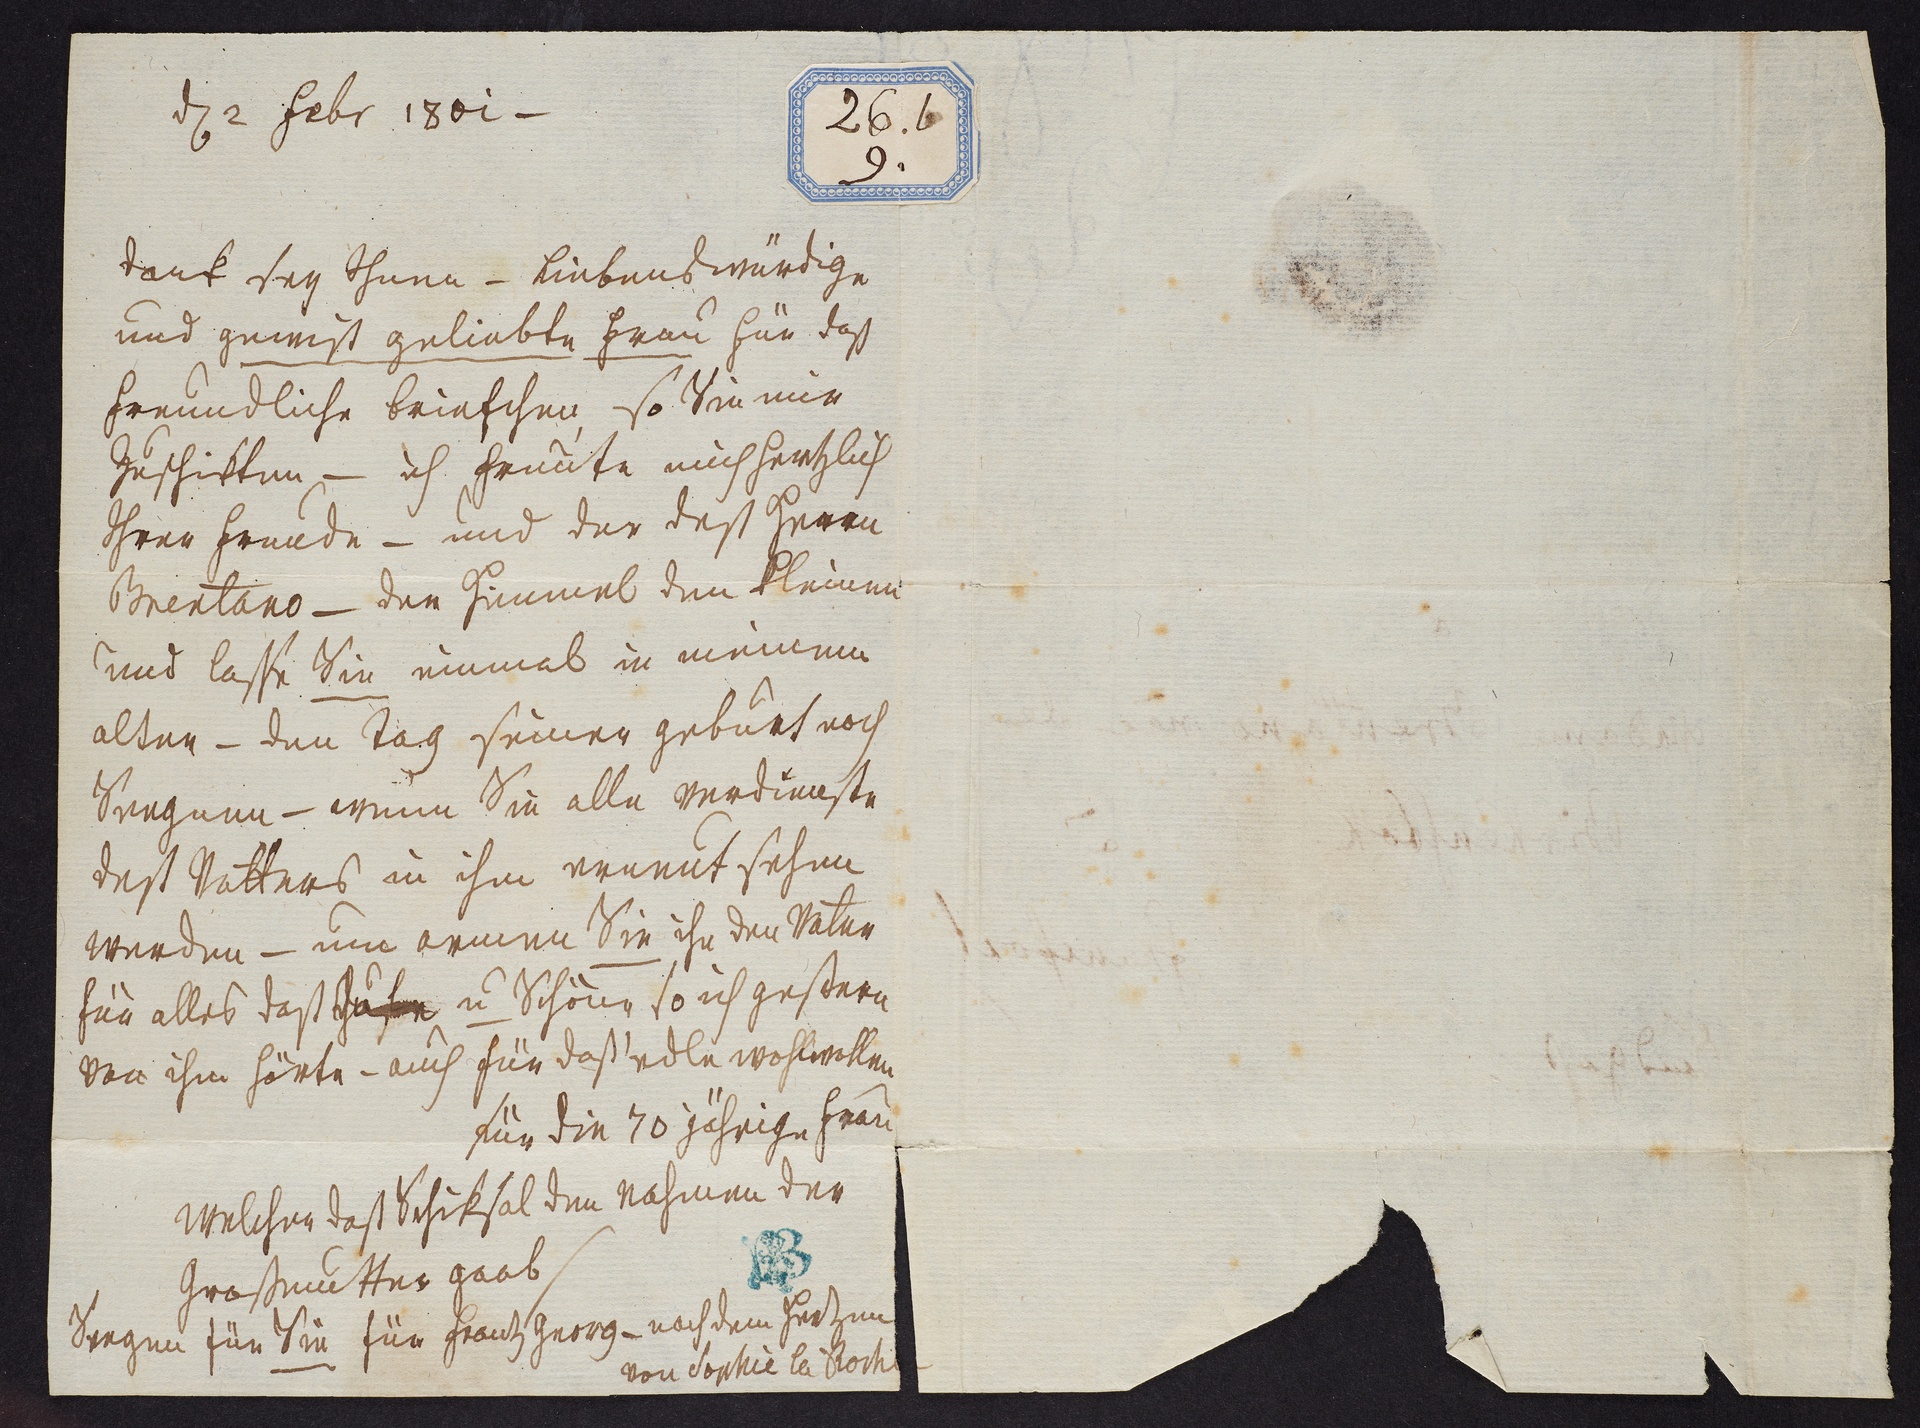 d 2 Febr 1801 –
26. b
9.
dank sey Ihnen – liebenswürdige
und gewiß geliebte Frau für daß
freundliche briefchen, so Sie mir
Zuschikten – ich freute mich hertzlich
Ihrer Freude – und der deß Herrn
Brentano – der Himmel den kleinen
und lasse Sie einmal in meinem
alter – den Tag seiner geburt noch
Seegnen – wenn Sie alle verdienste
deß Vatters in ihm erneut sehen
werden – um armen Sie ihn den Vater
für alles daß u Schöne so ich gestern
von ihm hörte – auch für daß edle wohlwollen
für die 70 jährige Frau
Welcher daß Schiksal den nahmen der
Großmutter gaab
Seegen für Sie für Frantz Georg – nach dem Hertzen
von Sophie la Roche